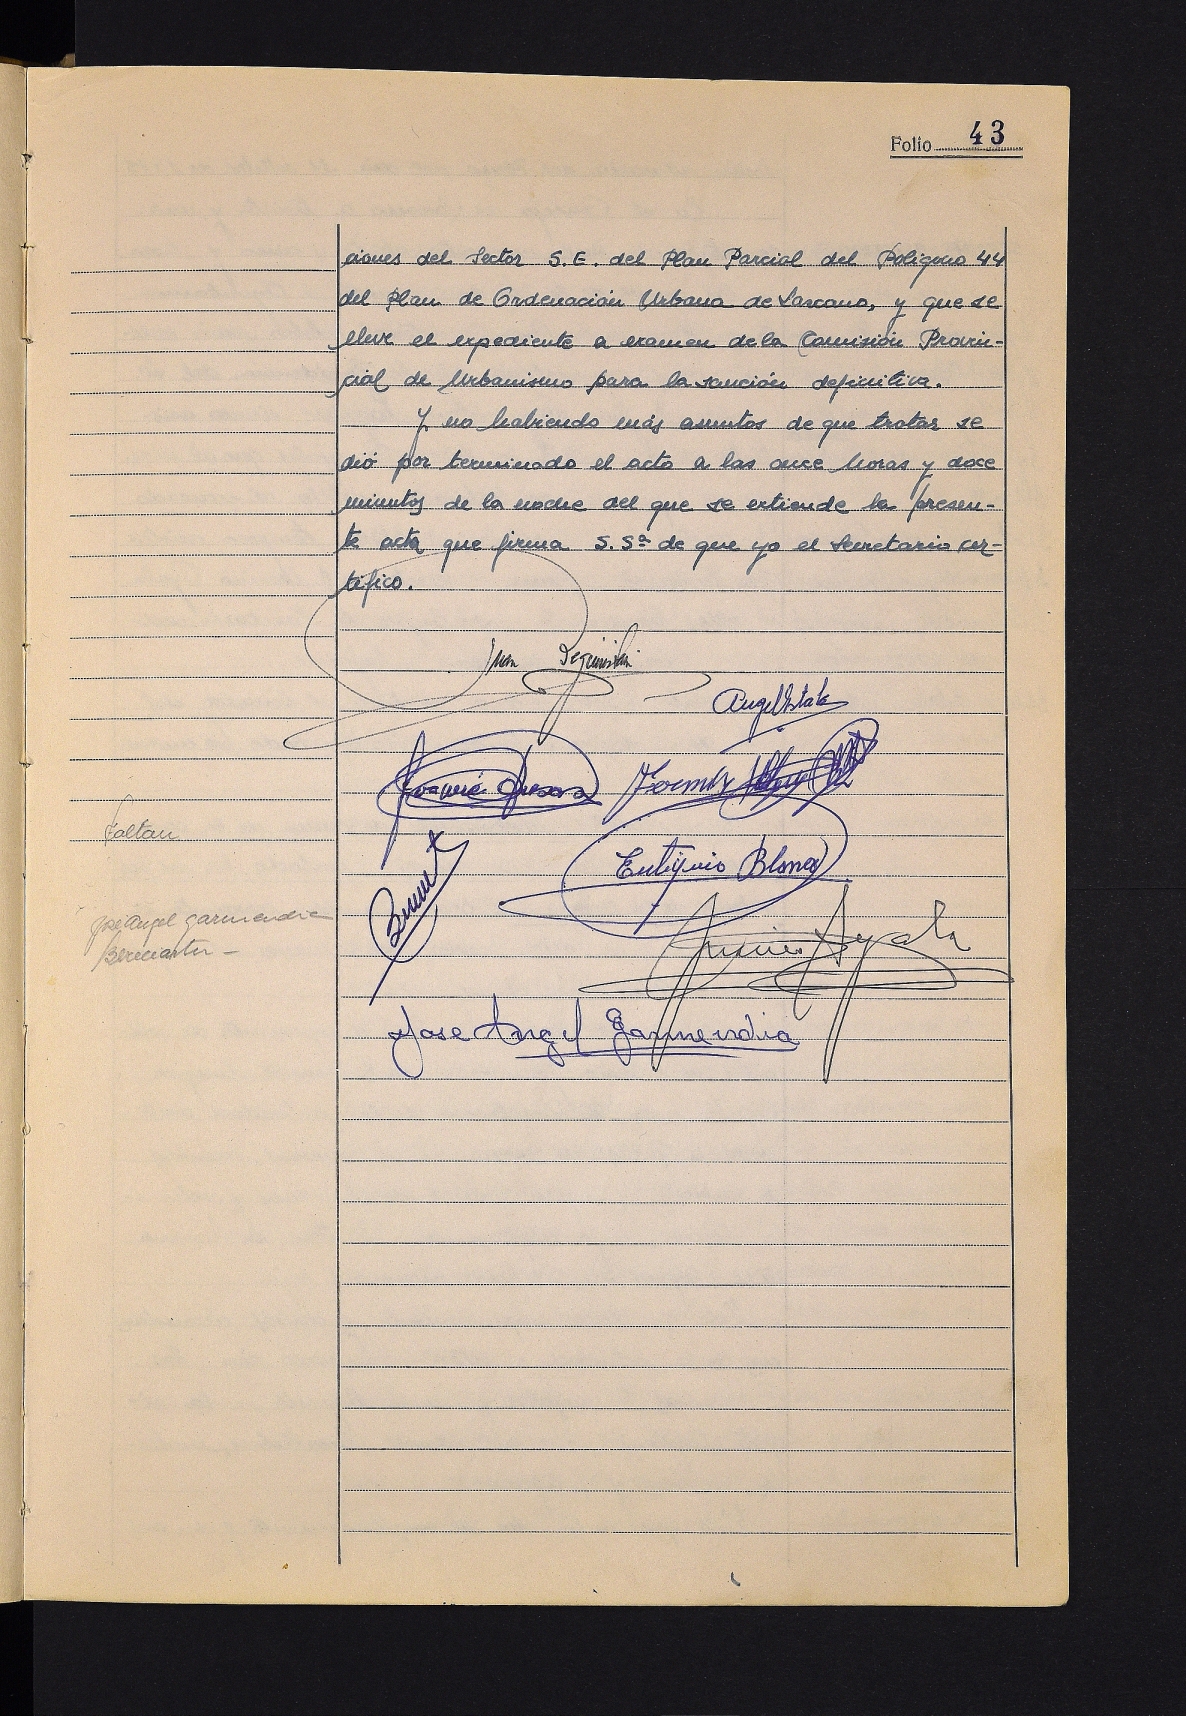 Folio 43
ciones del Sector S.E. del Plan Parcial del Polígono 44
del Plan de Ordenación Urbana de Lazcano, y que se
lleve el expediente a examen de la Comisión Provin-
cial de Urbanismo para la sanción definitiva.
Y no habiendo más asuntos de que tratar se
dió por terminado el acto a las once horas y doce
minutos de la noche del que se extiende la presen-
te acta que firma S.Sª de que yo el Secretario cer-
tifico.
Juan
Angel
Faltan
Eutiquio Blanco
José Angel Garmendia
Javier Ayala
Jose Angel Garmendia